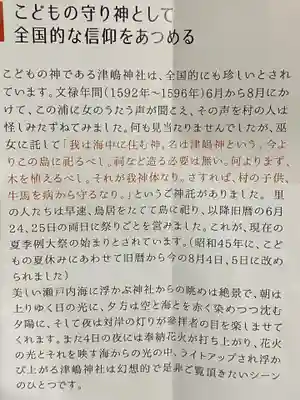 こどもの守り神として
全国的な信仰をあつめる
こどもの神である津嶋神社は、全国的にも珍しいとされ
ています。文禄年間（1592年〜1596年）6月から8月にか
けて、この浦に女のうたう声が聞こえ、その声を村の人は
怪しみたずねてみました。何も見当たりませんでしたが、巫
女に託して「我は海中に住む神。名は津嶋神という。今よ
りこの島に祀るべし。祠など造る必要は無い。何よりまず、
木を植えるべし。それが我神体なり。さすれば、村の子供、
牛馬を病から守るなり。」というご神託がありました。 里
の人たちは早速、鳥居をたてて島に祀り、以降旧暦の6月
24、25日の両日に祭りごとを営みました。これが、現在の
夏季例大祭の始まりとされています。（昭和45年に、こど
もの夏休みにあわせて旧暦から今の8月4日、5日に改め
られました）
美しい瀬戸内海に浮かぶ神社からの眺めは絶景で、朝は
上りゆく日の光に、夕方は空と海とを赤く染めつつ沈む
夕陽に、そして夜は対岸の灯りが參拝者の目を楽しませて
くれます。また4日の夜には奉納花火が打ち上がり、花火
の光とそれを映す海からの光の中、ライトアップされ浮か
び上がる津嶋神社は幻想的で是非ご覧頂きたいシーン
のひとつです。